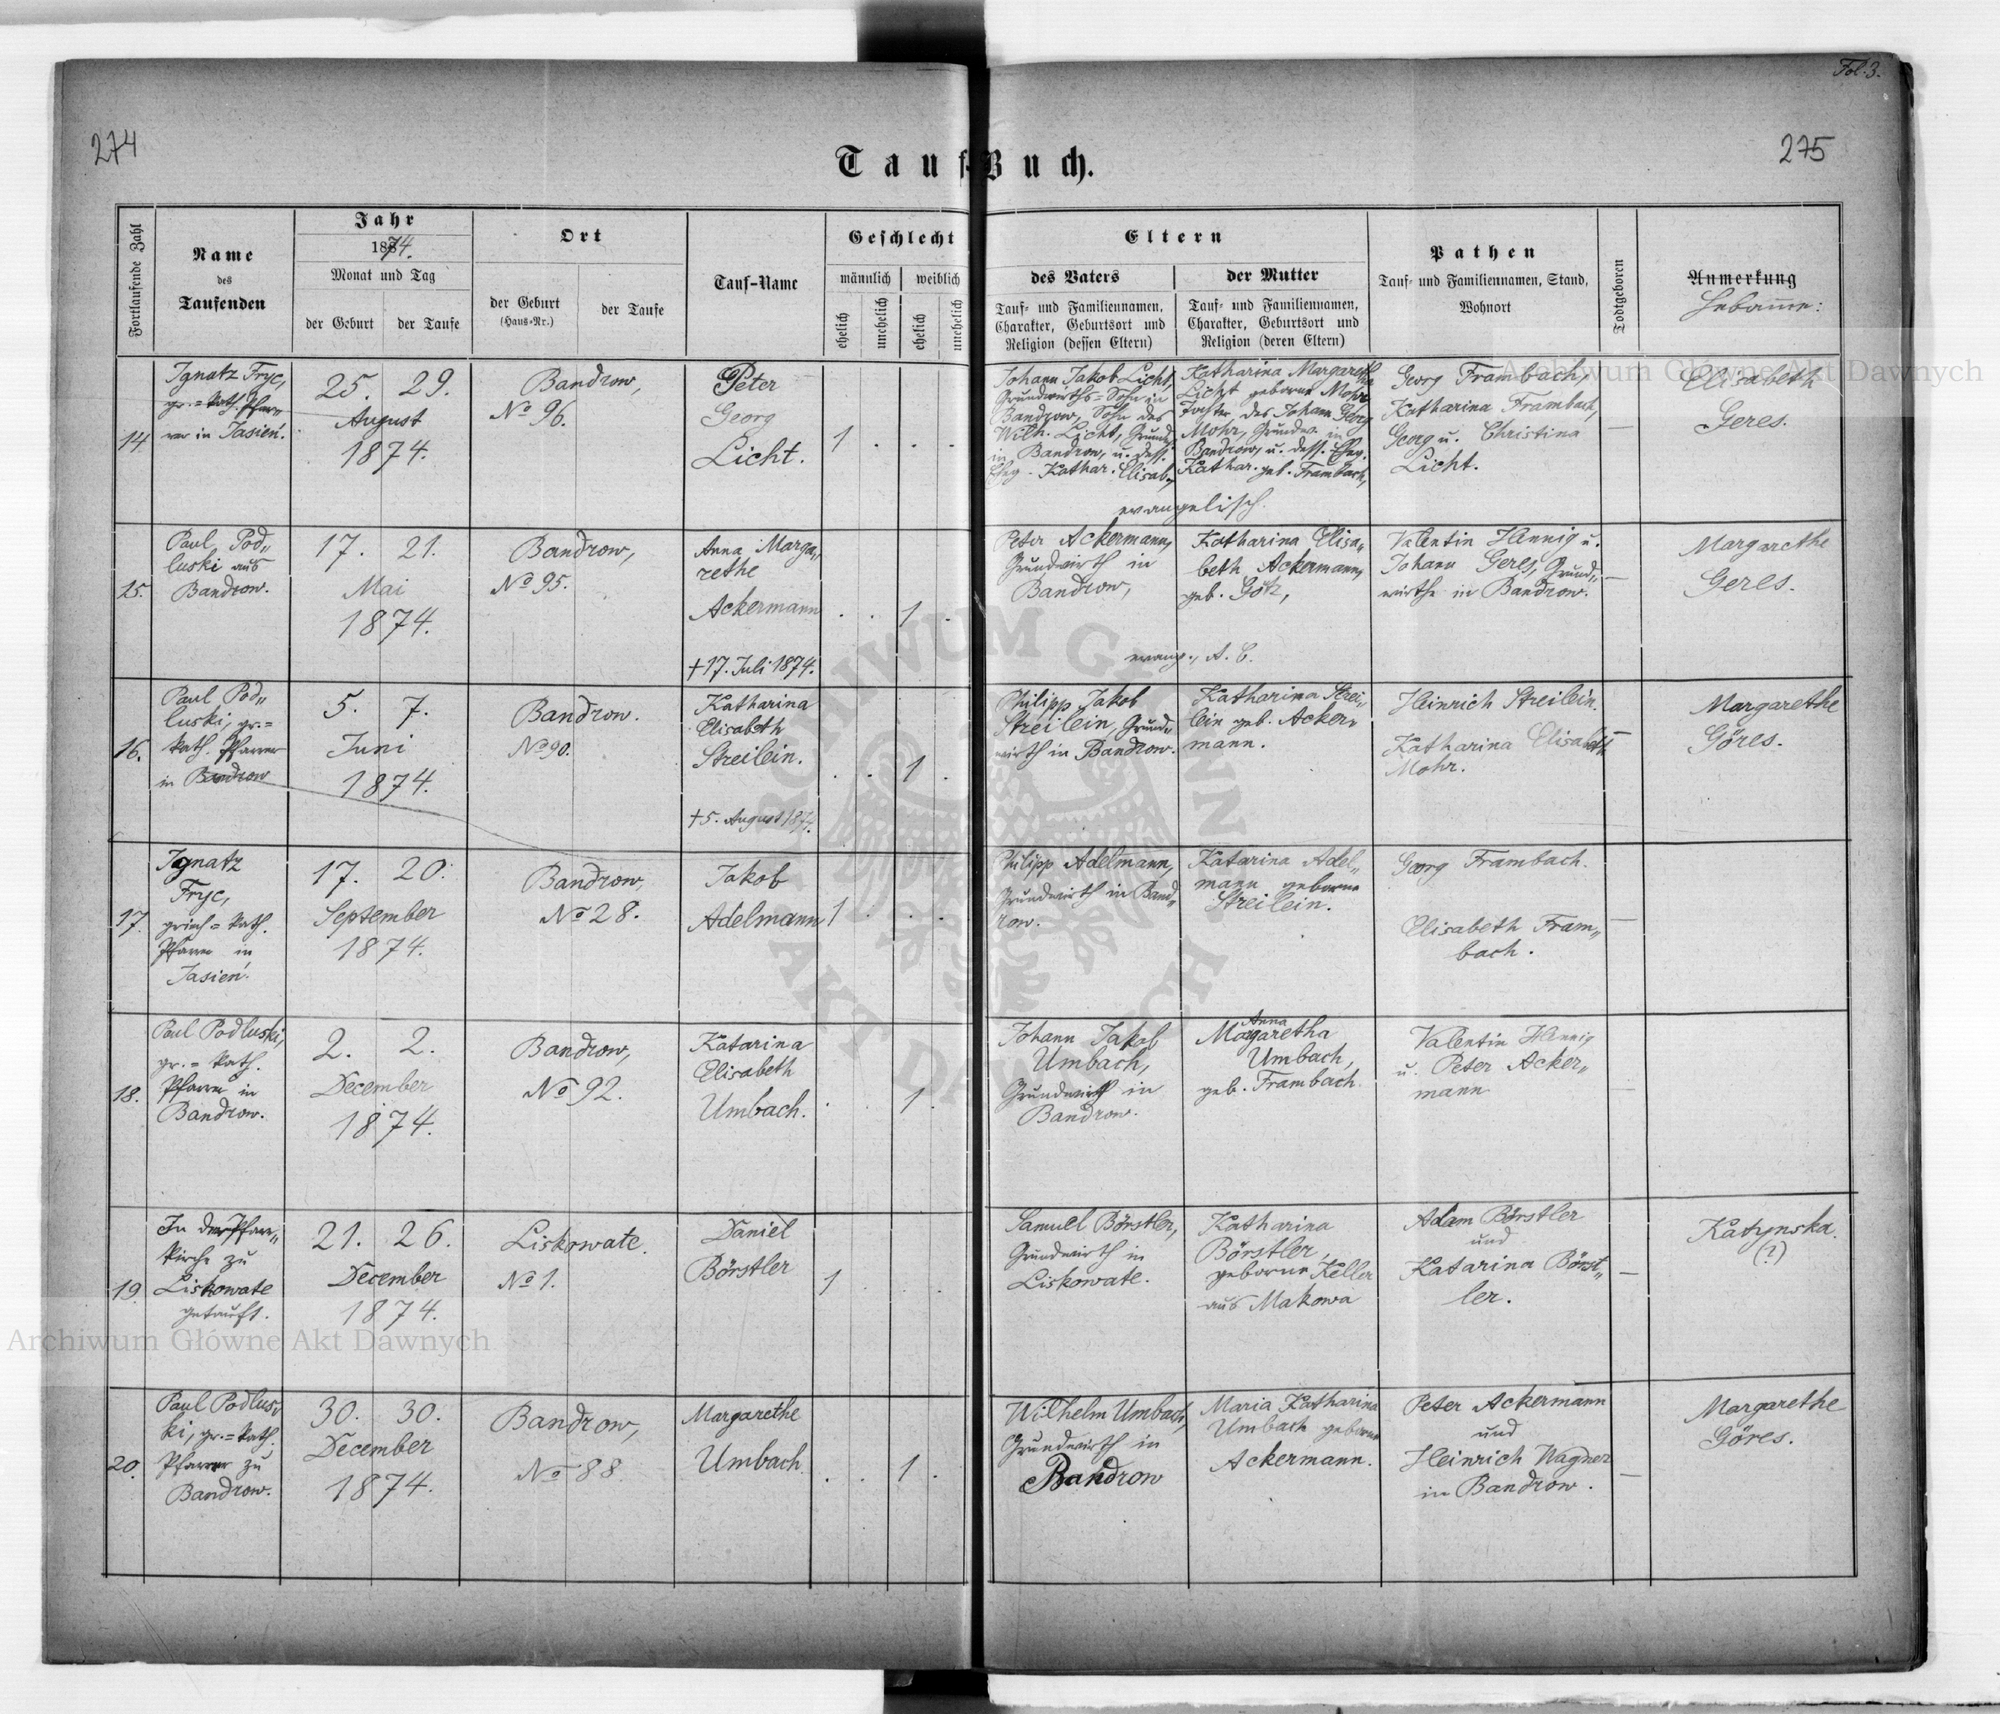 Fol. 3.
274
275
Tauf-Buch.
Fortlaufende Zahl
Name
des
Taufenden
Jahr
1874.
Monat und Tag
der Geburt
der Taufe
Ort
der Geburt
(Haus-Nr.)
der Taufe
Tauf-Name
Geschlecht
männlich
weiblich
ehelich
unehelich
ehelich
unehelich
Eltern
des Vaters
Tauf- und Familiennamen,
Charakter, Geburtsort und
Religion (dessen Eltern)
der Mutter
Tauf- und Familiennamen,
Charakter, Geburtsort und
Religion (deren Eltern)
Pathen
Tauf- und Familiennamen, Stand,
Wohnort
Todtgeboren
Anmerkung
Hebamme:
14.
Ignatz Fryc,
gr.=kath. Pfar„
rer in Jasień.
25. 29.
August
1874.
Bandrow,
No 96.
Peter
Georg
Licht.
1 . . .
Johann Jakob Licht,
Grundwirths=Sohn in
Bandrow, Sohn des
Wilh. Licht, Grundw.
in Bandrow, u. dess.
Eheg. Kathar. Elisab.,
Katharina Margaretha
Licht geborne Mohr
Tochter des Johann Georg
Mohr, Grundw. in
Bandrow, u. dess. Eheg.
Kathar. geb. Frambach,
evangelisch.
Georg Frambach,
Katharina Frambach,
Georg u. Christina
Licht.
—
Elisabeth
Geres.
15.
Paul Pod„
luski aus
Bandrow.
17. 21.
Mai
1874.
Bandrow,
No 95.
Anna Marga„
rethe
Ackermann
+ 17. Juli 1874.
. . 1 .
Peter Ackermann,
Grundwirth in
Bandrow,
Katharina Elisa„
beth Ackermann,
geb. Götz,
evang., A. C.
Valentin Hennig u.
Johann Geres, Grund„
wirthe in Bandrow.
—
Margarethe
Geres.
16.
Paul Pod„
luski, gr.=
kath. Pfarrer
in Bandrow
5. 7.
Juni
1874.
Bandrow.
No 90.
Katharina
Elisabeth
Streilein.
+ 5. August 1874.
. . 1 .
Philipp Jakob
Streilein, Grund„
wirth in Bandrow.
Katharina Strei„
lein geb. Acker„
mann.
Heinrich Streilein.
Katharina Elisabeth
Mohr.
—
Margarethe
Göres.
17.
Ignatz
Fryc,
griech=kath.
Pfarrer in
Jasień.
17. 20.
September
1874.
Bandrow,
No 28.
Jakob
Adelmann
1 . . .
Philipp Adelmann,
Grundwirth in Band„
row.
Katarina Adel„
mann geborne
Streilein.
Georg Frambach.
Elisabeth Fram„
bach.
—
18.
Paul Podluski,
gr.=kath.
Pfarrer in
Bandrow.
2. 2.
December
1874.
Bandrow,
No 92.
Katarina
Elisabeth
Umbach.
. . 1 .
Johann Jakob
Umbach,
Grundwirth in
Bandrow.
Anna
Margaretha
Umbach,
geb. Frambach.
Valentin Hennig
u. Peter Acker„
mann
—
19.
In der Pfarr„
kirche zu
Liskowate
getauft.
21. 26.
December
1874.
Liskowate.
No 1.
Daniel
Börstler
1 . . .
Samuel Börstler,
Grundwirth in
Liskowate.
Katharina
Börstler,
geborne Keller
aus Makowa
Adam Börstler
und
Katarina Börst„
ler.
—
Katynska.
(?)
20.
Paul Podlus„
ki, gr.=kath.
Pfarrer zu
Bandrow.
30. 30.
December
1874.
Bandrow,
No 88.
Margarethe
Umbach
. . 1 .
Wilhelm Umbach,
Grundwirth in
Bandrow
Maria Katharina
Umbach geborne
Ackermann.
Peter Ackermann
und
Heinrich Wagner
in Bandrow.
—
Margarethe
Göres.
Archiwum Główne Akt Dawnych
Archiwum Główne Akt Dawnych
ARCHIWUM GŁÓWNE AKT DAWNYCH